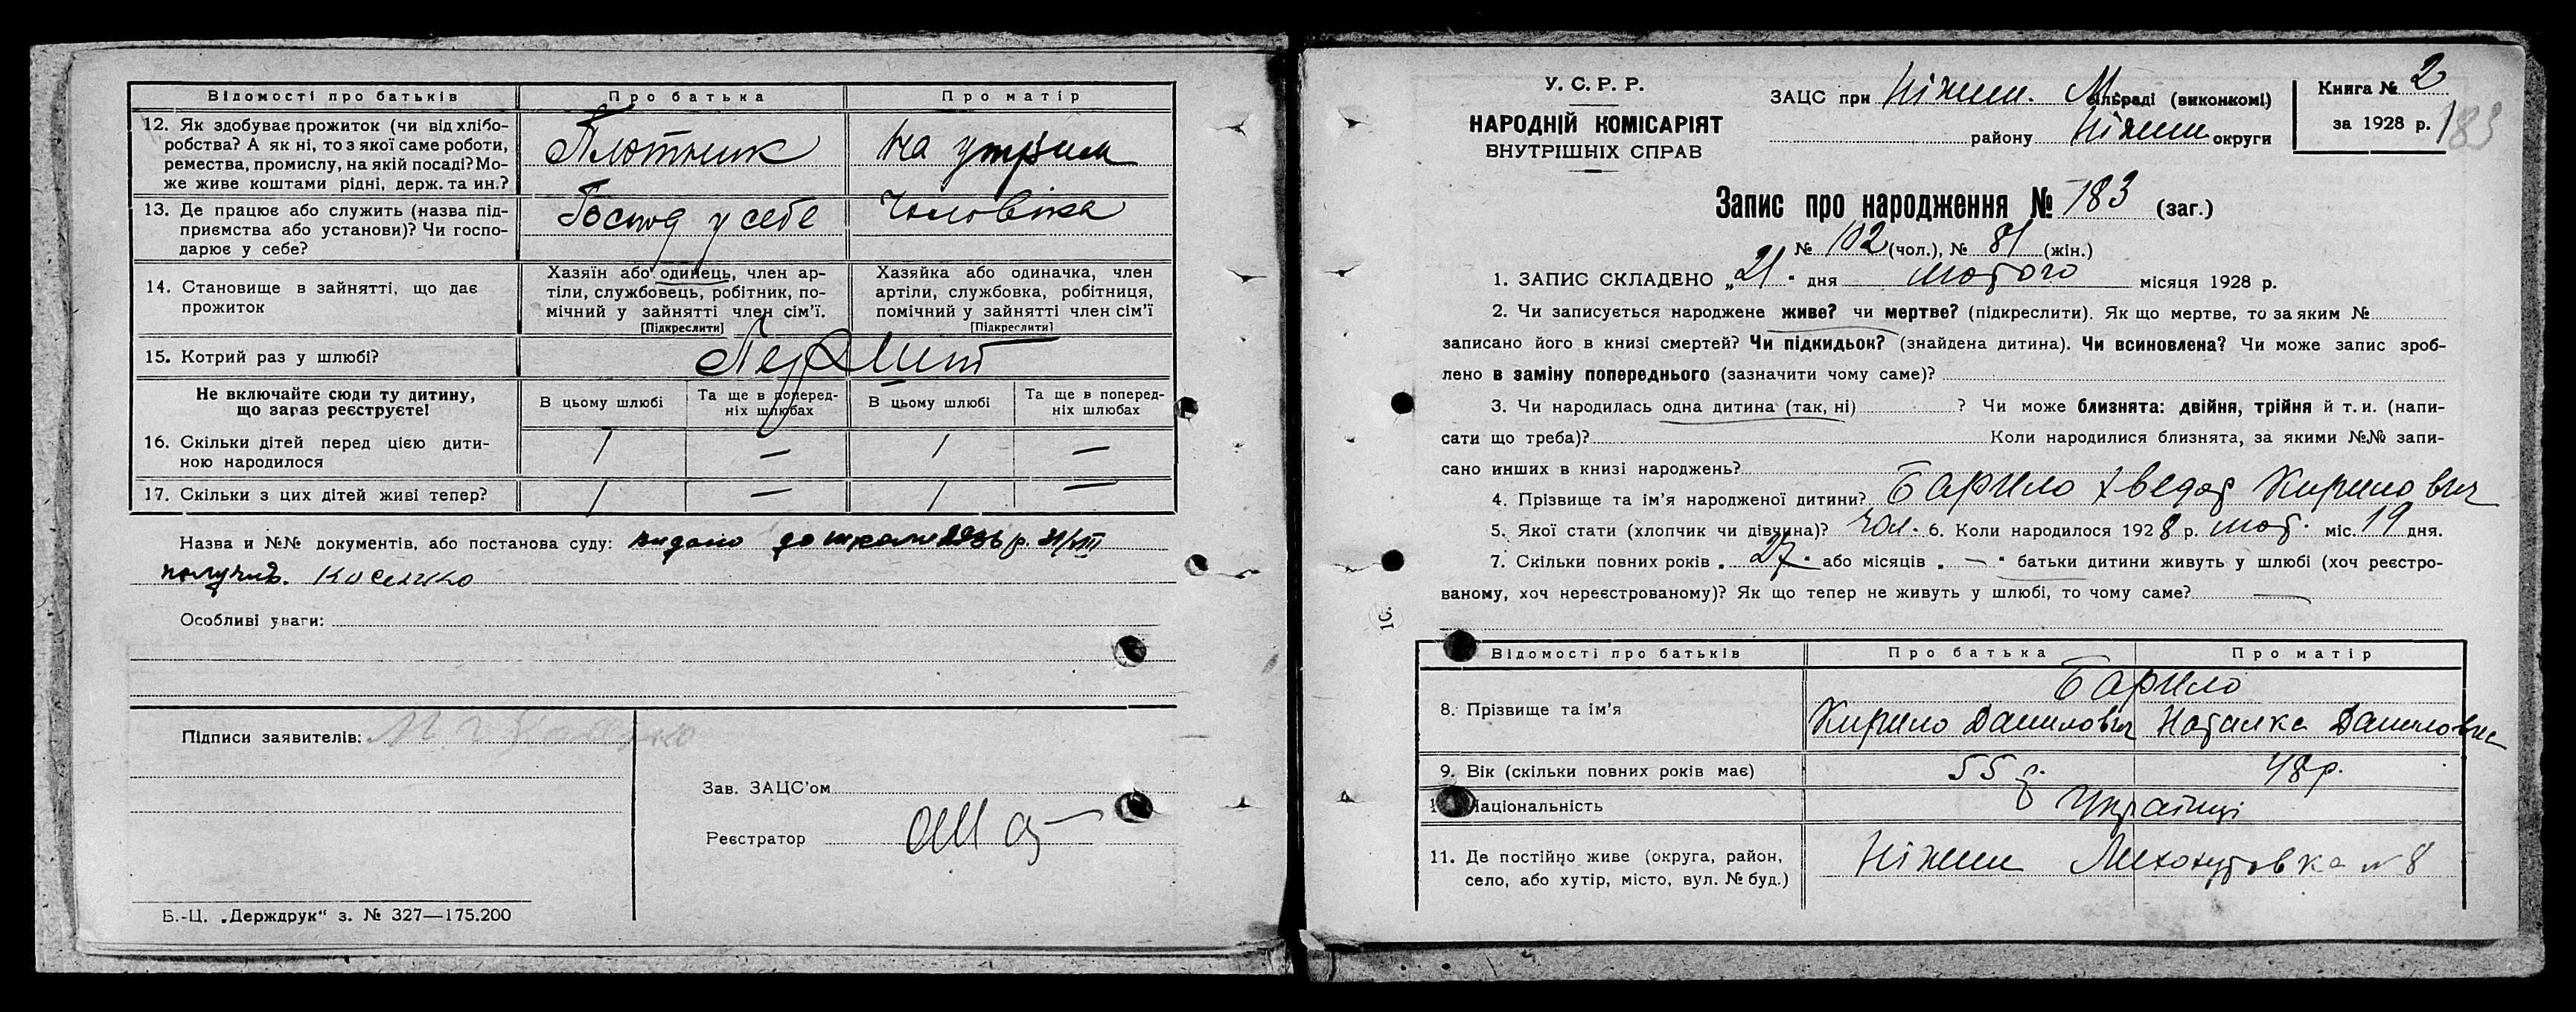 Відомості про батьків Про батька Про матір
12. Як здобуває прожиток (чи від хлібо-
робства? А як ні, то з якої саме роботи,
ремества, промислу, на якій посаді? Мо-
же живе коштами рідні, держ. та ин.?
Плотник на утрим
13. Де працює або служить (назва під-
приємства або установи)? Чи госпо-
дарює у себе?
Господ у себе чоловіка
14. Становище в зайнятті, що дає
прожиток
Хазяїн або одинець, член ар-
тілі, службовець, робітник, по-
мічний у зайнятті член сім'ї.
[Підкреслити]
Хазяйка або одиначка, член
артілі, службовка, робітниця,
помічний у зайнятті член сім'ї
[Підкреслити]
15. Котрий раз у шлюбі?
Не включайте сюди ту дитину,
що зараз реєструєте!
В цьому шлюбі Та ще в поперед-
ніх шлюбах В цьому шлюбі Та ще в поперед-
ніх шлюбах
16. Скільки дітей перед цією дити-
ною народилося 1 — 1 —
17. Скільки з цих дітей живі тепер? 1 — 1 —
Назва и №№ документів, або постанова суду: видано до школи 1936 р. 21/VIII
получив.
Особливі уваги:
Підписи заявителів:
Зав. ЗАЦС'ом
Реєстратор
Б.-Ц. „Держдрук“ з. № 327—175.200
У. С. Р. Р.
НАРОДНІЙ КОМІСАРІЯТ
ВНУТРІШНІХ СПРАВ
ЗАЦС при Ніжин. М сільраді (виконкомі)
району Ніжин округи
Книга № 2
за 1928 р.
183
Запис про народження № 183 (заг.)
№ 102 (чол.), № 81 (жін.)
1. ЗАПИС СКЛАДЕНО „21“ дня лютого місяця 1928 р.
2. Чи записується народжене живе? чи мертве? (підкреслити). Як що мертве, то за яким №
записано його в книзі смертей? Чи підкидьок? (знайдена дитина). Чи всиновлена? Чи може запис зроб-
лено в заміну попереднього (зазначити чому саме)?
3. Чи народилась одна дитина (так, ні) ? Чи може близнята: двійня, трійня й т. и. (напи-
сати що треба)? Коли народилися близнята, за якими №№ запи-
сано инших в книзі народжень?
4. Прізвище та ім'я народженої дитини? Барило Хведор Кирилович
5. Якої стати (хлопчик чи дівчина)? Чол. 6. Коли народилося 1928 р. лют. міс. 19 дня.
7. Скільки повних років „27“ або місяців „—“ батьки дитини живуть у шлюбі (хоч реєстро-
ваному, хоч нереєстрованому)? Як що тепер не живуть у шлюбі, то чому саме? —
Відомості про батьків Про батька Про матір
8. Прізвище та ім'я
Барило
Кирило Данилович Наталка Даниловна
9. Вік (скільки повних років має) 55 р. 48 р.
Національність Українці
11. Де постійно живе (округа, район,
село, або хутір, місто, вул. № буд.)
Ніжин № 8